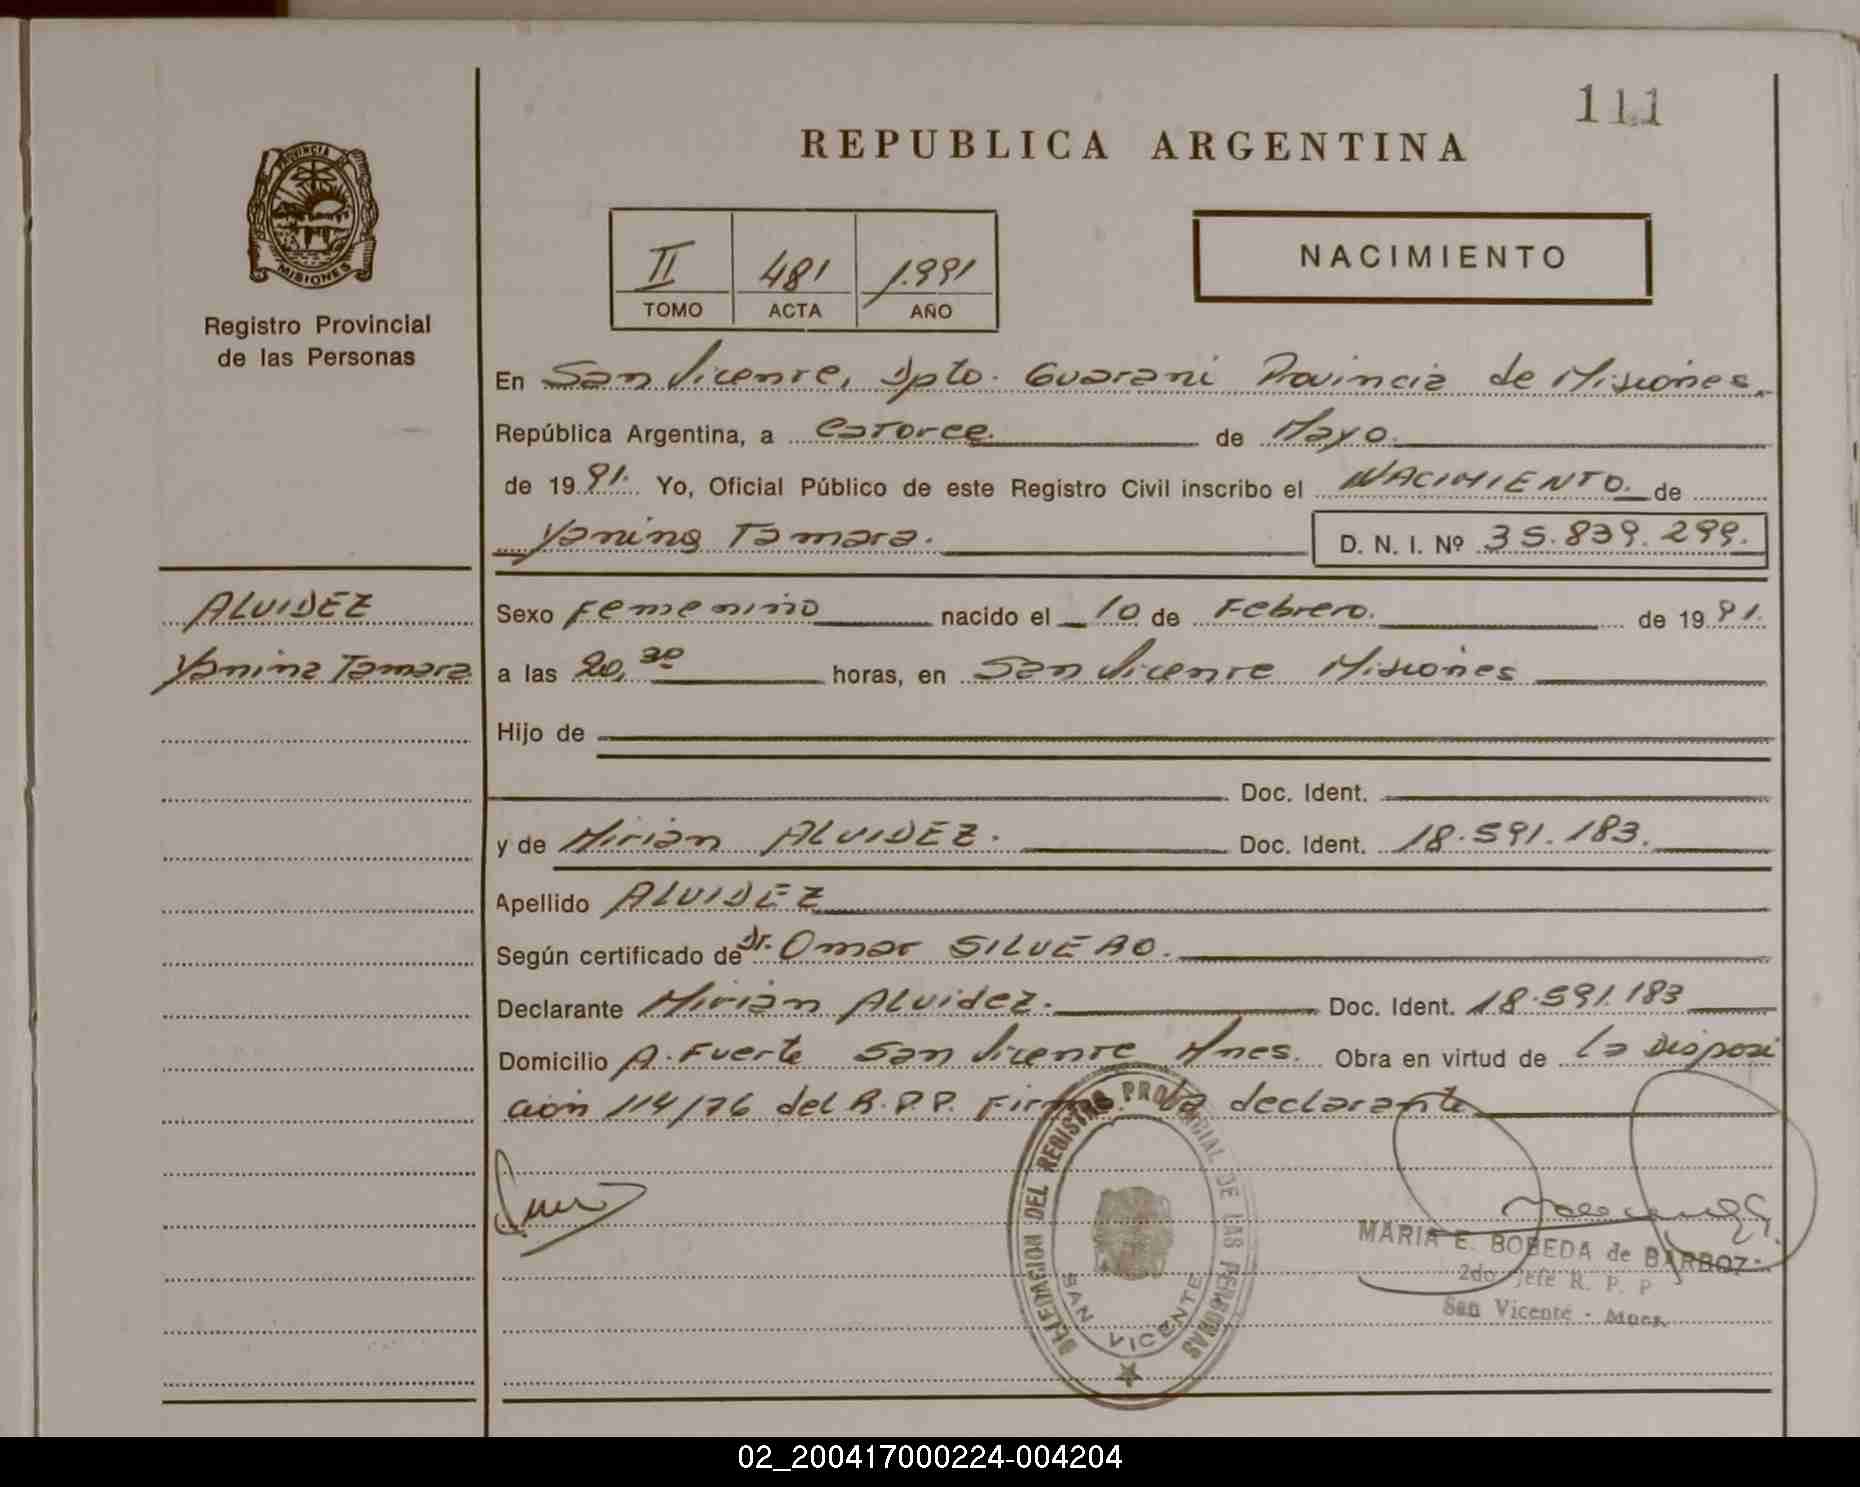 111
REPUBLICA ARGENTINA
PROVINCIA DE
MISIONES
Registro Provincial
de las Personas
II 481 1.991
TOMO ACTA AÑO
NACIMIENTO
En San Vicente, Dpto. Guarani Provincia de Misiones.
República Argentina, a catorce. de Mayo.
de 1991. Yo, Oficial Público de este Registro Civil inscribo el NACIMIENTO. de
Yanina Tamara.
D. N. I. Nº 35.839.299.
ALVIDEZ
Yanina Tamara
Sexo Femenino nacido el 10 de Febrero. de 1991.
a las 20,30 horas, en San Vicente Misiones
Hijo de
Doc. Ident.
y de Mirian ALVIDEZ. Doc. Ident. 18.591.183.
Apellido ALVIDEZ
Según certificado de Dr. Omar SILVERO.
Declarante Mirian Alvidez. Doc. Ident. 18.591.183
Domicilio A. Fuerte San Vicente Mnes. Obra en virtud de la Disposi
ción 114/76 del R.P.P. Firma: La declarante
DELEGACION DEL REGISTRO PROVINCIAL DE LAS PERSONAS
SAN VICENTE
MARIA E. BOBEDA de BARBOZA
2do Jefe R. P. P
San Vicente - Mnes.
02_200417000224-004204